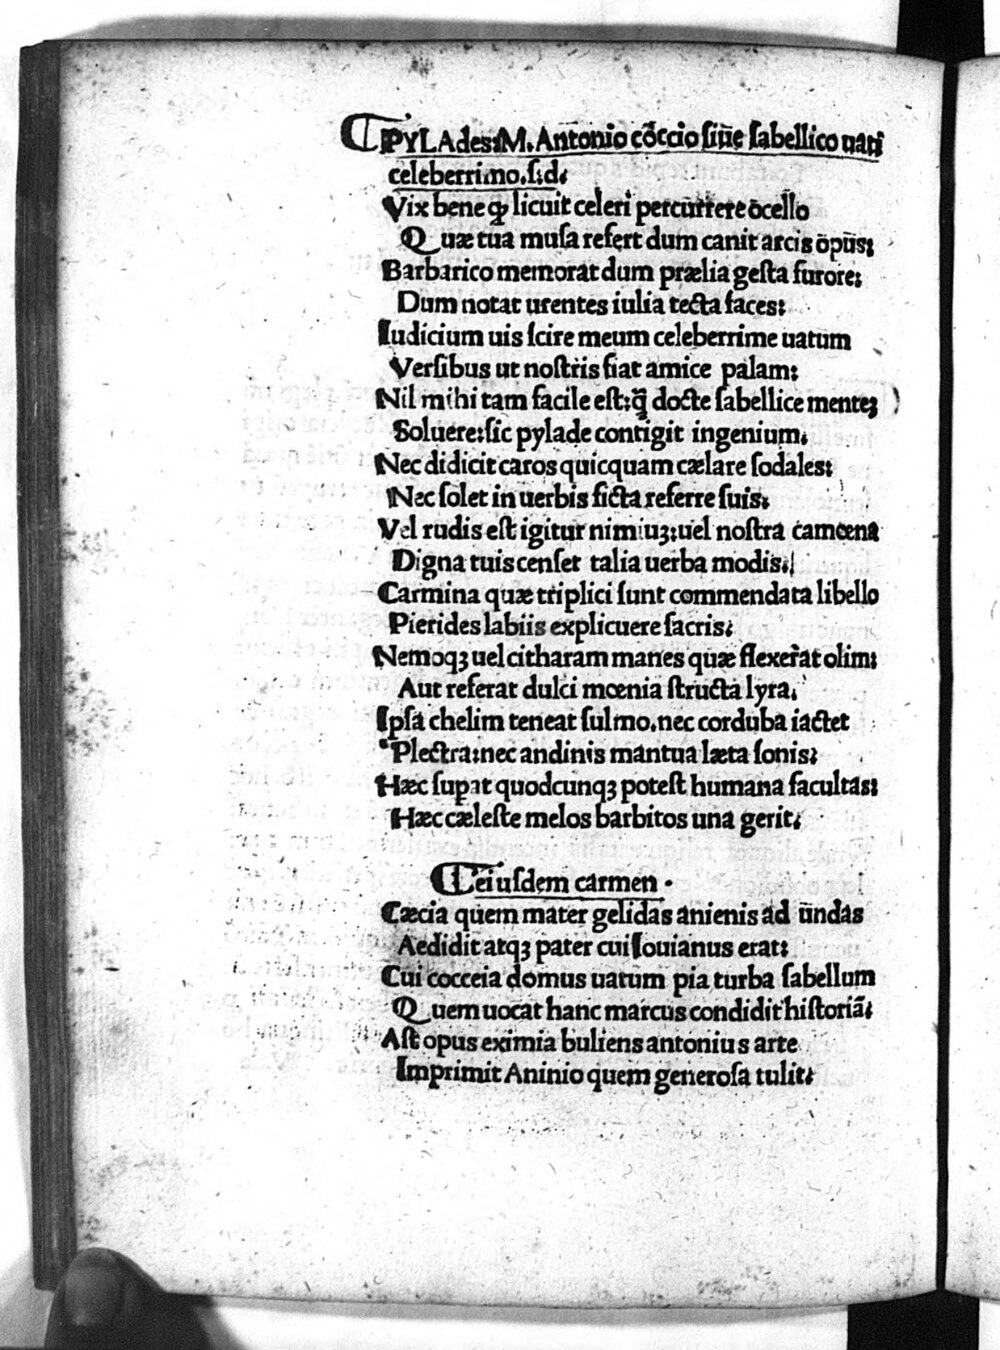 PYLAdes:M.Antonio cōccio siue sabellico uati
celeberrimo.s;d;
Vix bene ꝙ licuit celeri percurrere ocello
Quæ tua musa refert dum canit arcis opus:
Barbarico memorat dum prælia gesta furore:
Dum notat urentes iulia tecta faces:
Iudicium uis scire meum celeberrime uatum
Versibus ut nostris fiat amice palam:
Nil mihi tam facile est:ꝙ̃ docte sabellice mentez
Soluere:sic pylade contigit ingenium.
Nec didicit caros quicquam cælare sodales:
Nec solet in uerbis ficta referre suis.
Vel rudis est igitur nimiuꝫ:uel nostra camœna
Digna tuis censet talia uerba modis.
Carmina quæ triplici sunt commendata libello
Pierides labiis explicuere sacris:
Nemoqꝫ uel citharam manes quæ flexerat olim:
Aut referat dulci mœnia structa lyra.
Ipsa chelim teneat sulmo.nec corduba iactet
Plectra:nec andinis mantua læta sonis:
Hæc supat quodcunqꝫ potest humana facultas:
Hæc cæleste melos barbitos una gerit.
eiusdem carmen .
Cæcia quem mater gelidas anienis ad undas
Aedidit atqꝫ pater cui Iouianus erat:
Cui cocceia domus uatum pia turba sabellum
Quem uocat hanc marcus condidit historiā:
Ast opus eximia buliens antonius arte
Imprimit Aninio quem generosa tulit: